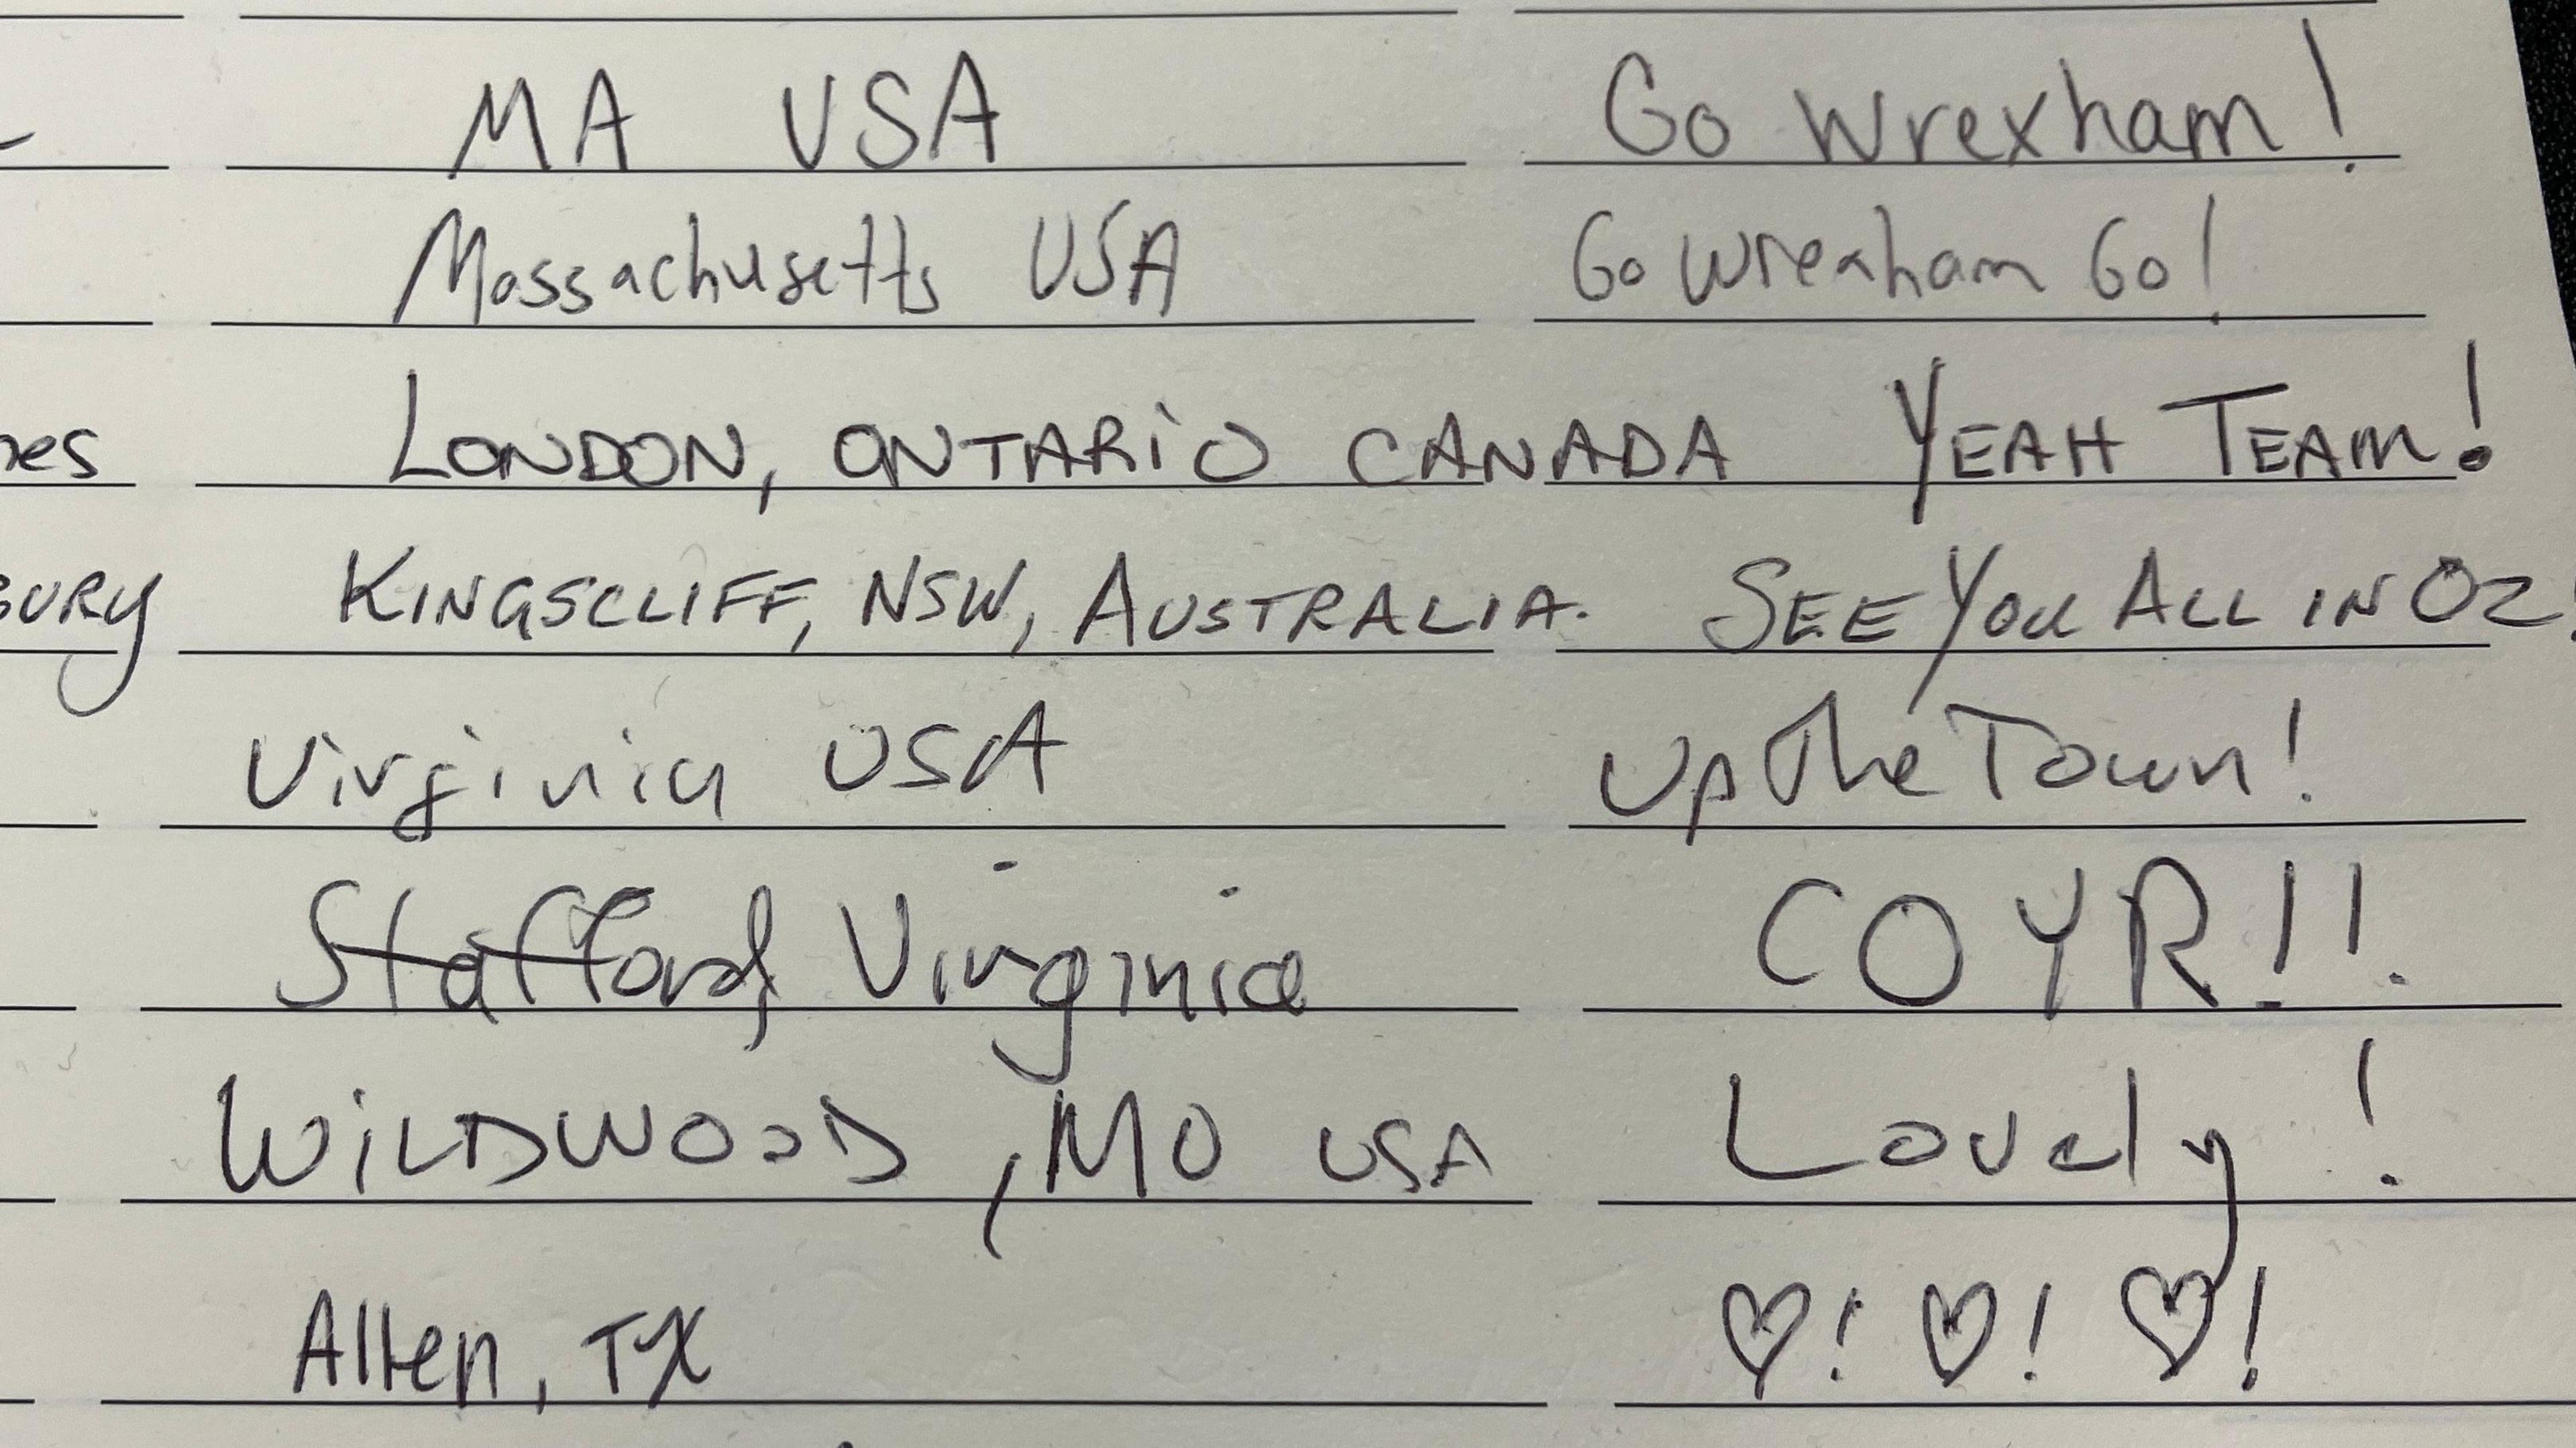 MA USA Go Wrexham!
Massachusetts USA Go Wrexham Go!
nes LONDON, ONTARiO CANADA YEAH TEAM!
BURY KINGSCLIFF, NSW, AUSTRALIA. SEE YOU ALL IN OZ!
Virginia USA Up The Town!
Stafford, Virginia COYR!!
WiLDWOOD, MO USA Lovely!
Allen, TX ♡! ♡! ♡!